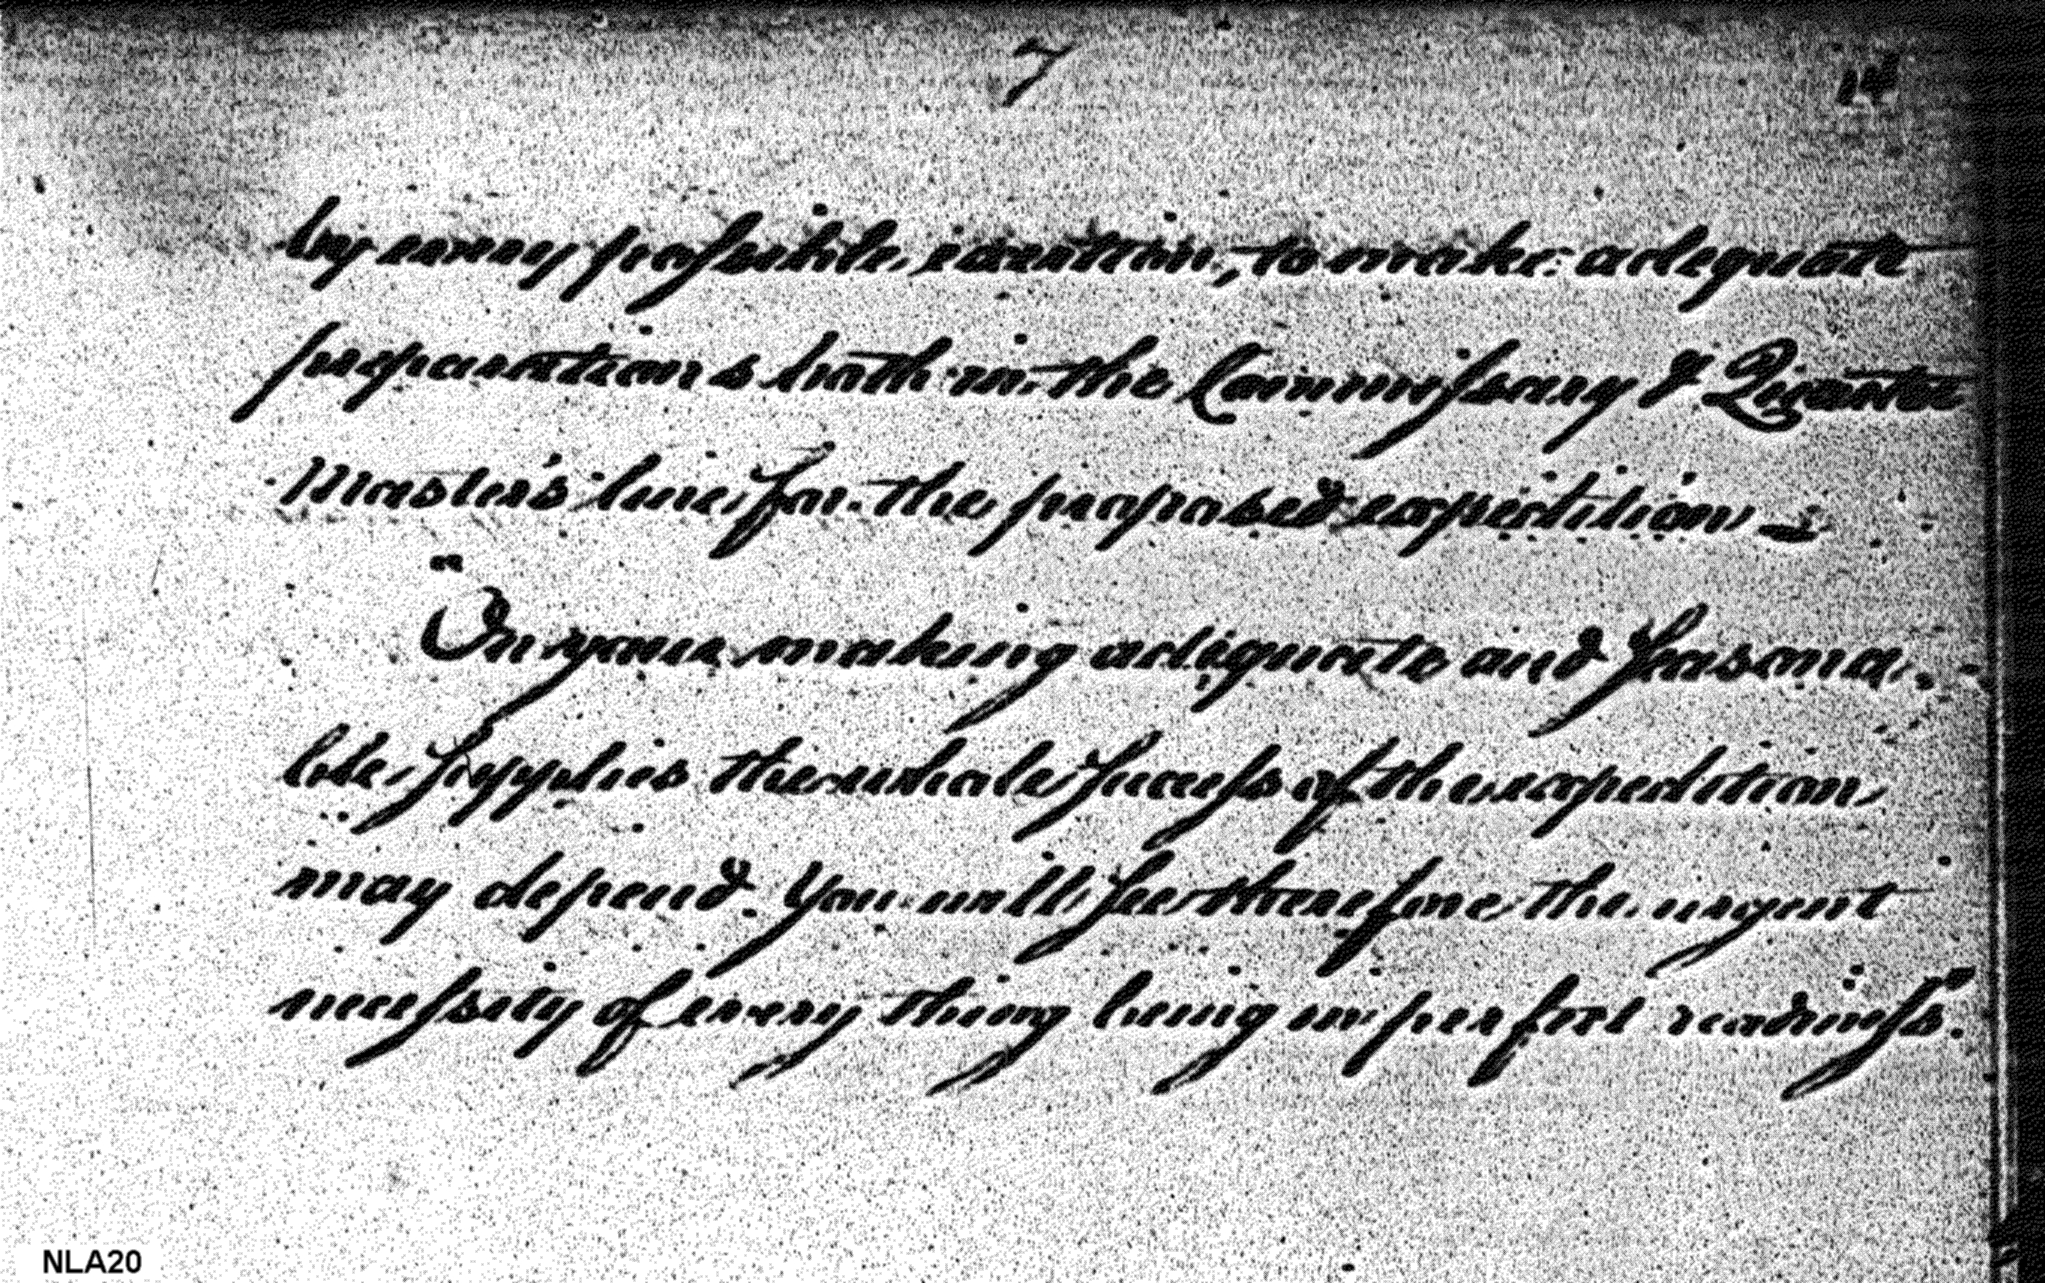 7
14
by every possible exertion, to make adequate
preparations both in the Commissary & Quarter
Master's line for the proposed expedition —
"On your making adequate and seasona-
ble supplies the whole success of the expedition
may depend. You will see therefore the urgent
necessity of every thing being in perfect readiness."
NLA20